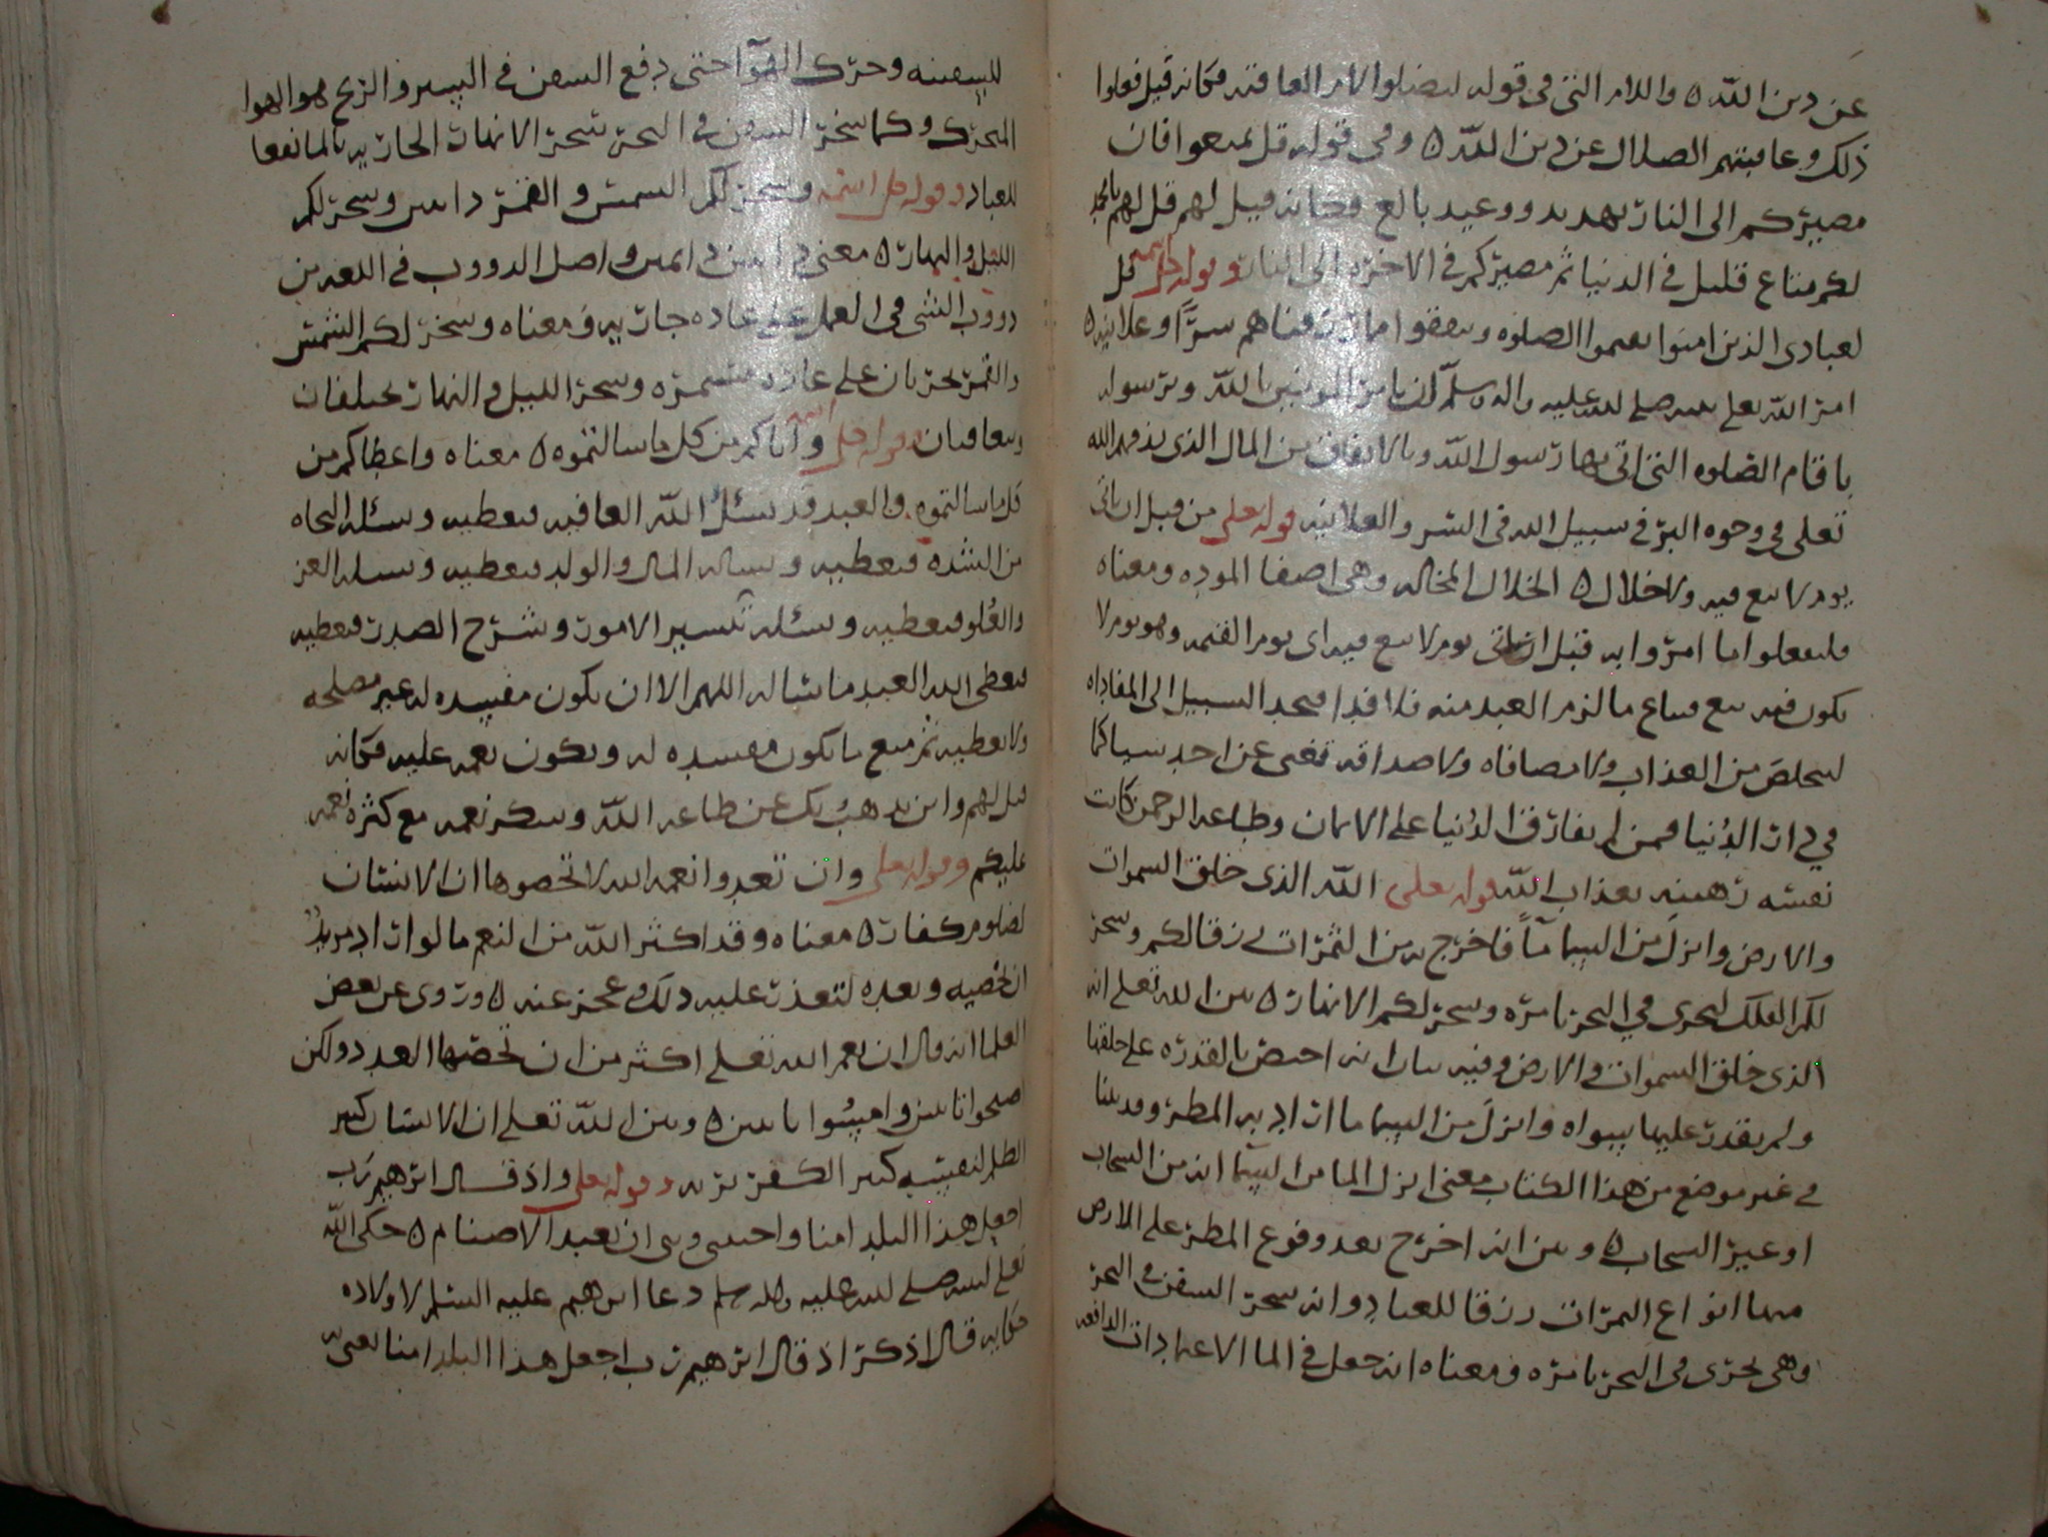 عن دين الله ه واللام التي في قوله ليضلوا لام العاقبه فكانه قيل فعلوا
ذلك وعاقبتهم الضلال عن دين الله ه وفي قوله قل تمتعوا فان
مصيركم الى النار تهديد ووعيد بالغ فكانه قيل لهم قل لهم يا محمد
لكم متاع قليل في الدنيا ثم مصيركم في الاخره الى النار وقوله جل اسمه قل
لعبادي الذين امنوا يقيموا الصلوه وينفقوا مما رزقناهم سرًّا وعلانيه ه
امر الله تعلى نبيه صلى الله عليه واله وسلم ان يامر المومنين بالله وبرسوله
باقام الصلوه التي اتى بها رسول الله وبالانفاق من المال الذي رزقهم الله
تعلى في وجوه البر في سبيل الله في السر والعلانيه قوله تعلى من قبل ان ياتي
يوم لا بيع فيه ولا خلال ه الخلال المخاله وهي اصفا الموده ومعناه
فليفعلوا ما امروا به قبل ان ياتي يوم لا بيع فيه اي يوم القيمه وهو يوم لا
يكون فيه بيع فيباع ما لزم العبد منه فلا فدا فيجد السبيل الى المفاداه
ليخلص من العذاب ولا مصافاه ولا صداقه تغني عن احد شيا كما
في دار الدنيا فمن لم يفارق الدنيا على الايمان وطاعه الرحمن كانت
نفسه رهينه بعذاب الله قوله تعلى الله الذي خلق السموات
والارض وانزل من السما مآً فاخرج به من الثمرات رزقا لكم وسخر
لكم الفلك لتجري في البحر بامره وسخر لكم الانهار ه بين الله تعلى انه
الذي خلق السموات والارض وفيه بيان انه اختص بالقدره على خلقها
ولم يقدر عليها سواه وانزل من السما ما اراد به المطر وقد بينا
في غير موضع من هذا الكتاب معنى انزل الما من السما انه من السحاب
او عير السحاب ه وبين انه اخرج بعد وقوع المطر على الارض
منها انواع الثمرات رزقا للعباد وانه سخر السفن في البحر
وهي تجرى في البحر بامره ومعناه انه جعل في الما الاعتمادات الدافعه
للسفينه وحرك الهوآ حتى دفع السفن في السير والريح هو الهوا
المتحرك وكما سخر السفن في البحر سخر الانهار الجاريه بالما نفعا
للعباد وقوله جل اسمه وسخر لكم الشمس والقمر داىبين وسخر لكم
الليل والنهار ه معنى داىبين دايمين واصل الدووب في اللغه من
دووب الشي في العمل على عاده جاريه ومعناه وسخر لكم الشمس
والقمر يجريان على عاده مستمره وسخر الليل والنهار يختلفان
ويتعاقبان وقوله جل اسمه وآتاكم من كل ما سالتموه ه معناه واعطاكم من
كل ما سالتموه والعبد قد يسئل الله العافيه فيعطيه ويسئله النجاه
من الشده فيعطيه ويساله المال والولد فيعطيه ويسله العز
والعُلو فيعطيه ويسئله تيسير الامور وشرح الصدر فيعطيه
فيعطى الله العبد ما يشا له اللهم الا ان يكون مفسده له غير مصلحه
ولا يعطيه ثم منع ما يكون مفسده له ويكون نعمه عليه فكانه
قيل لهم واين يذهب بك عن طاعه الله وشكر نعمه مع كثره نعمه
عليكم وقوله تعلى وان تعدوا نعمه الله لا تحصوها ان الانسان
لظلوم كفار ه معناه وقد اكثر الله من النعم ما لو اراد مريدٌ
ان يحصيه ويعده لتعذر عليه ذلك وعجز عنه ه وروى عن بعض
العلما انه قال ان نعم الله تعلى اكثر من ان تحصيها العدد ولكن
اصبحوا تايبين وامسُوا تايبين ه وبين الله تعلى ان الانسان كثير
الظلم لنفسه كثير الكفر بربه وقوله تعلى واذ قال ابرهيم رب
اجعل هذا البلد امنا واجنبني وبني ان نعبد الاصنام ه حكى الله
تعلى لنبيه صلى الله عليه واله وسلم دعا ابرهيم عليه السلم لاولاده
فكانه قال اذكر اذ قال ابرهيم رب اجعل هذا البلد امنا يعنى به